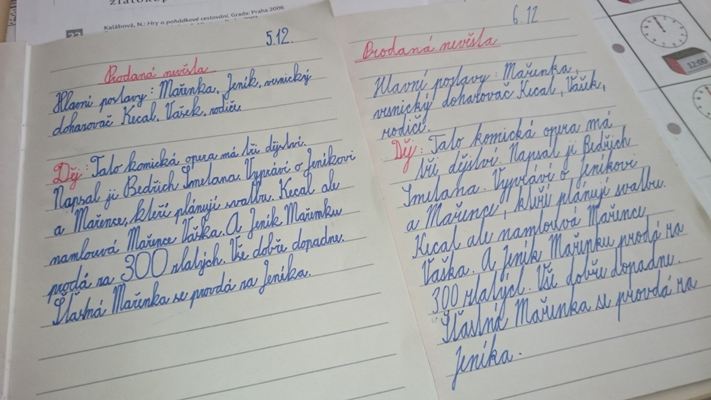 Kalábová, N.: Hry o pohádkové cestování. Grada: Praha 2006
5.12.
Prodaná nevěsta
Hlavní postavy: Mařenka, Jeník, vesnický
dohazovač Kecal, Vašek, rodiče
Děj: Tato komická opera má tři dějství.
Napsal ji Bedřich Smetana. Vypráví o Jeníkovi
a Mařence, kteří plánují svatbu. Kecal ale
namlouvá Mařence Vaška. A Jeník Mařenku
prodá za 300 zlatých. Vše dobře dopadne.
Šťastná Mařenka se provdá za Jeníka.
6.12
Prodaná nevěsta
Hlavní postavy: Mařenka,
vesnický dohazovač Kecal, Vašek,
rodiče.
Děj: Tato komická opera má
tři dějství. Napsal ji Bedřich
Smetana. Vypráví o Jeníkovi
a Mařence, kteří plánují svatbu.
Kecal ale namlouvá Mařence
Vaška. A Jeník Mařenku prodá za
300 zlatých. Vše dobře dopadne.
Šťastná Mařenka se provdá za
Jeníka.
12:00